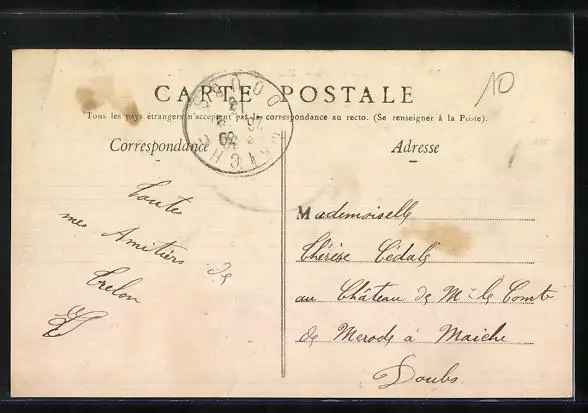 10
CARTE POSTALE
Tous les pays étrangers n'acceptent pas la correspondance au recto. (Se renseigner à la Poste).
Correspondance
Adresse
Toutes
mes Amitiés de
Trelon
Mademoiselle
Thérèse Cédale
au Château de Mr le Comte
de Merode à Maiche
Doubs
MAICHE
DOUBS